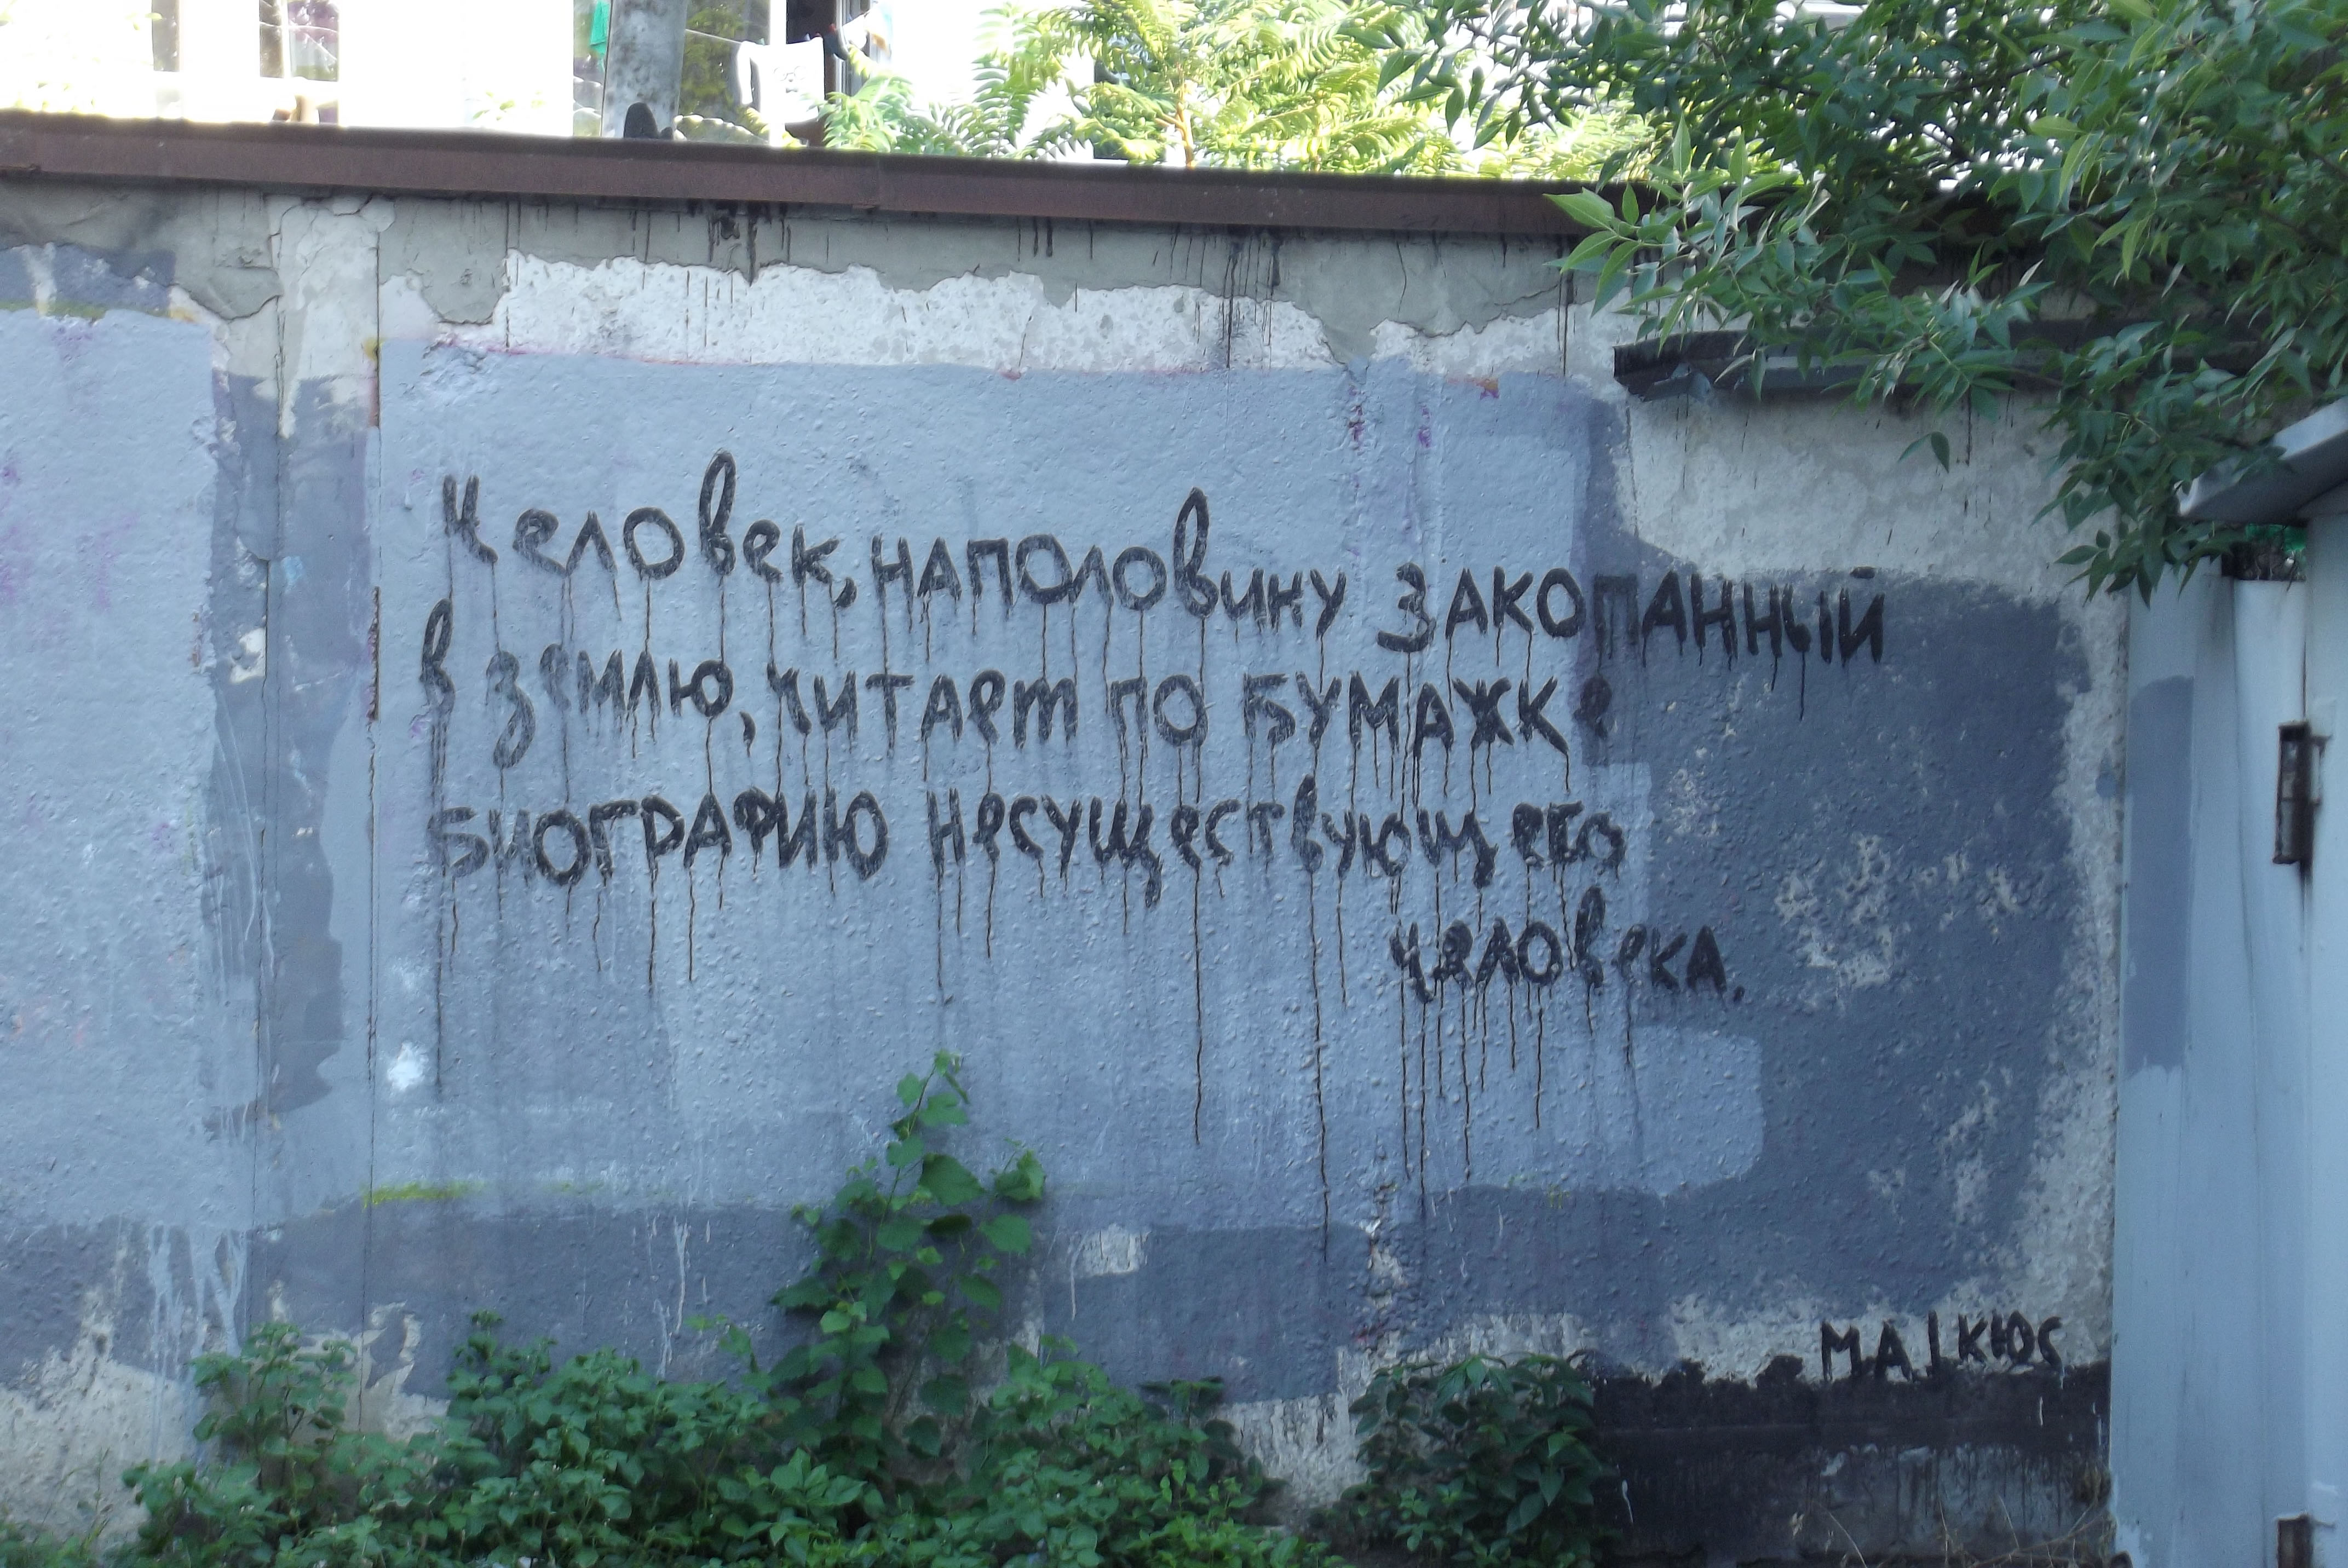 Человек, наполовину закопанный
в землю, читает по бумажке
биографию несуществующего
человека.